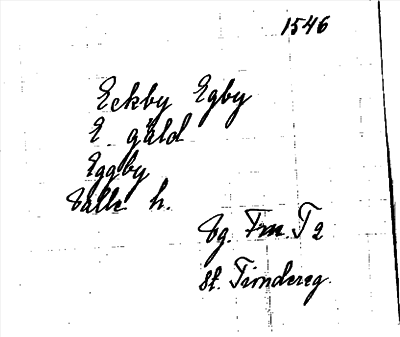 1546
Eckby Egby
E gäld
Eggby
Valle h.
Vg. Fm. T 2
St. Timdereg.